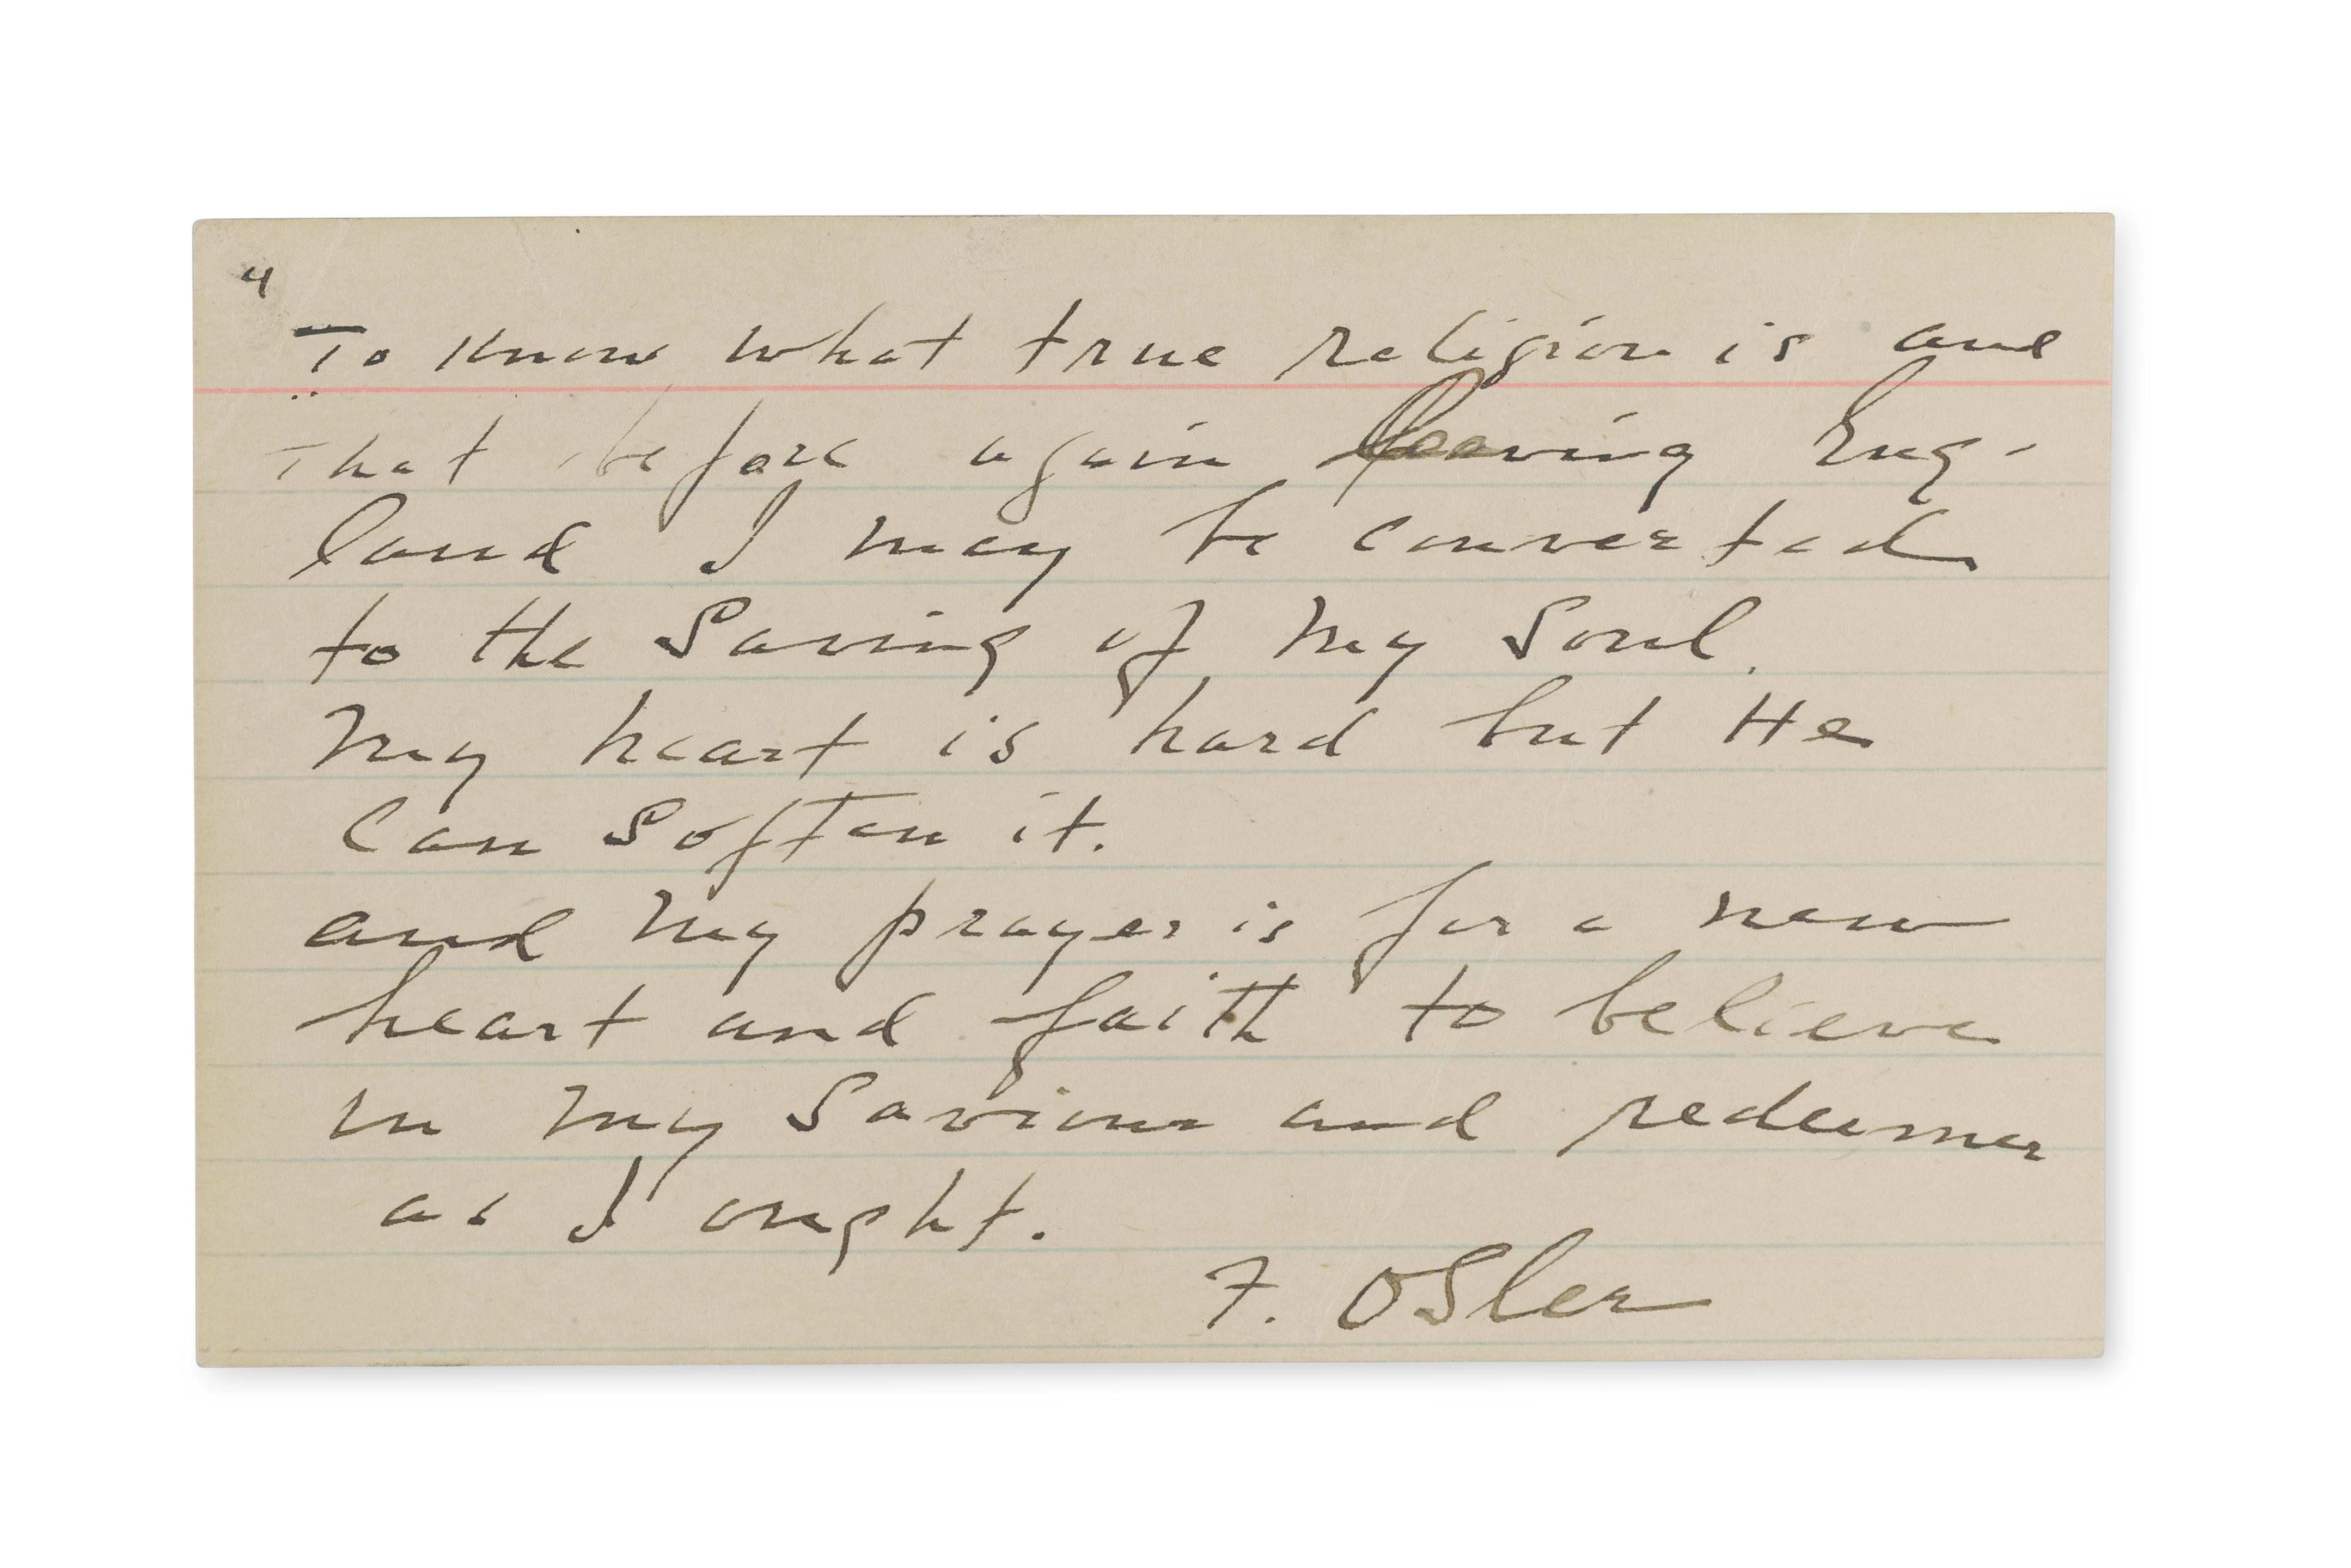 4
To Know what true religion is and
That before again leaving Eng-
land I may be converted
to the Saving of my Soul.
My heart is hard but He
Can Soften it.
and my prayer is for a new
heart and faith to believe
in my Saviour and redeemer
as I ought.
F. OSler